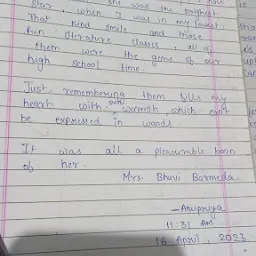 star, when I was in my
that kind smile and those
fun literature classes, all of
them were the gems of our
high school time.
Just remembering them fills my
heart with such warmth, which can't
be expressed in words.
It was all a pleasurable boon
of her.
Mrs. Bhavi Barmeda
-Anupriya
11:31 AM
16 April, 2023